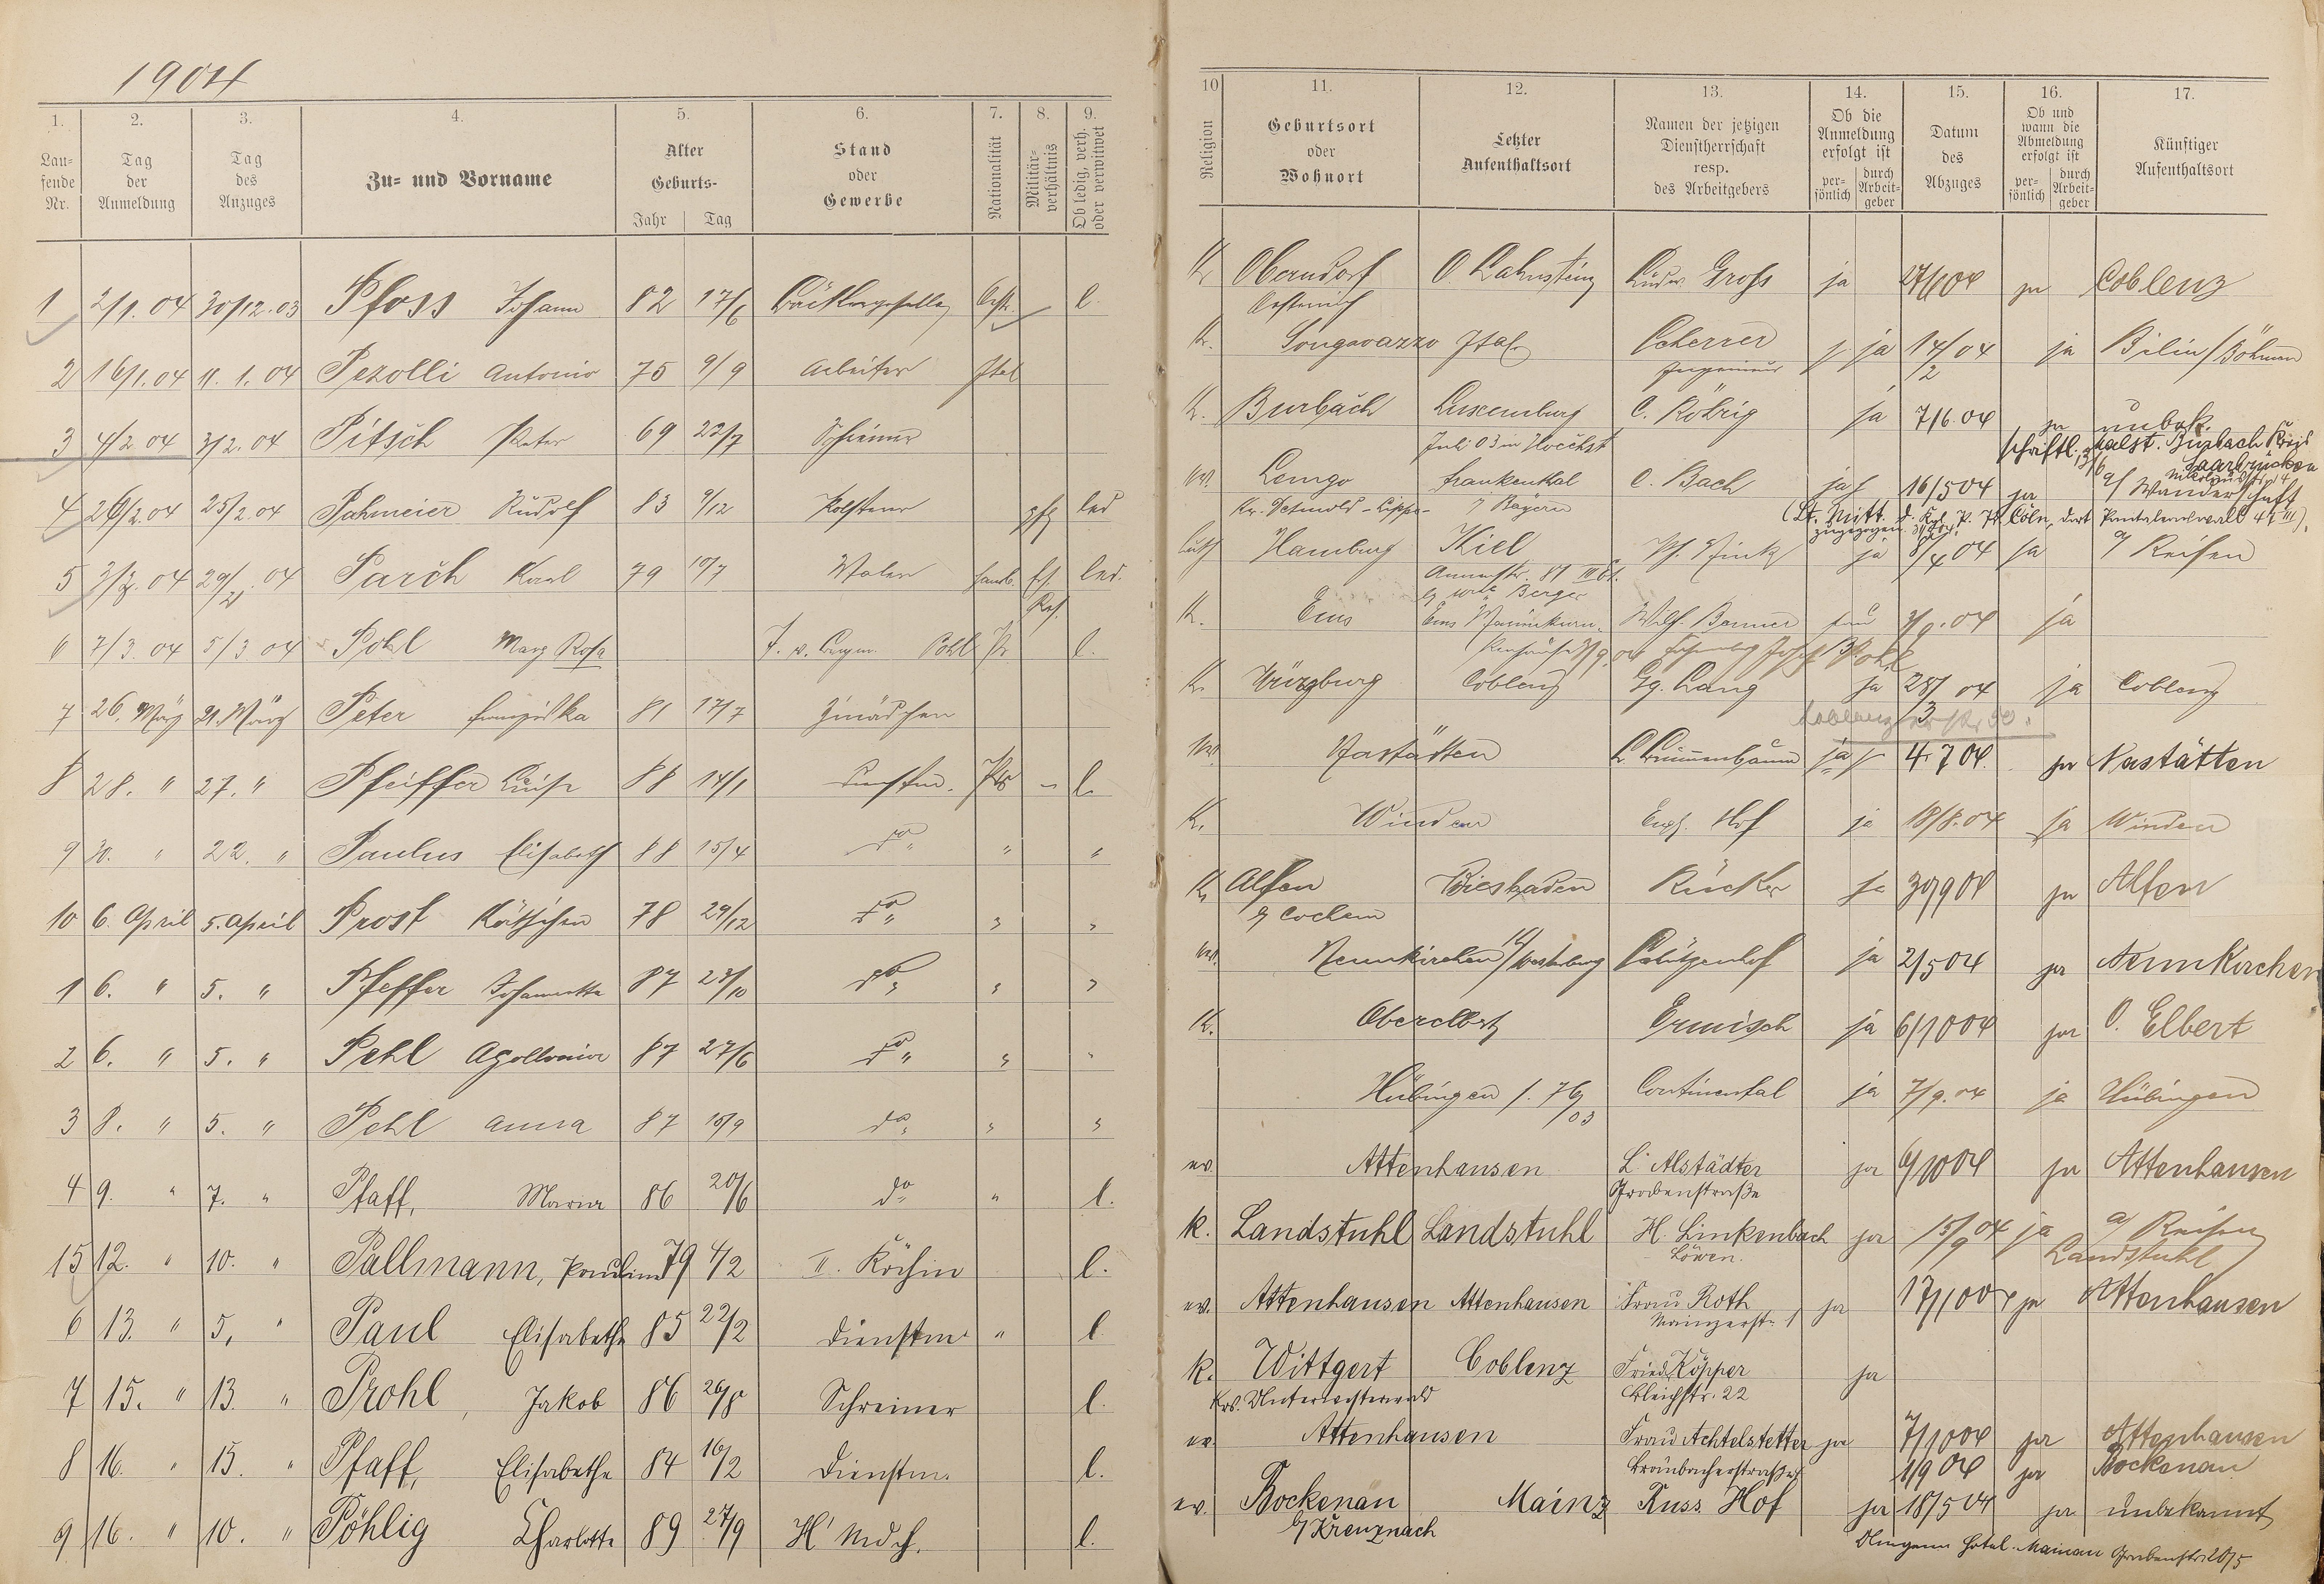 1904
1. 2. 3. 4. 5. 6. 7. 8. 9.
Lau-
fende
Nr.
Tag
der
Anmeldung
Tag
des
Anzuges
Zu- und Vorname
Alter
Geburts-
Jahr Tag
Stand
oder
Gewerbe
Nationalität
Militär-
verhältnis
Ob ledig, verh.
oder verwitwet
1 2/1. 04 30/12. 03 Pfoss Johann 82 17/6 l.
2 16/1. 04 11. 1. 04 Pezolli Antonio 75 9/9 Arbeiter Ital
3 4/2 04 3/2. 04 Pitsch Peter 69 22/7 Schreiner
4 26/2. 04 25/2. 04 Pahmeier Rudolf 83 9/12 led
5 3/3. 04 29/2. 04 Parch Karl 79 10/7 led.
6 7/3. 04 5/3 04 Pohl Marg Rosa Pohl l.
7 26. März 21. März Peter Franziska 81 17/7
8 28. " 27. " Pfeiffer Luise 88 14/1 - l.
9 30. " 22. " Paulus Elisabeth 88 15/4 do " " "
10 6. April 5. April Prost Käthchen 78 29/12 do " " "
1 6. " 5. " Pfeffer 87 23/10 do " " "
2 6. " 5. " Pehl Apollonia 87 27/6 do " " "
3 8. " 5. " Pehl Anna 87 15/9 do " " "
4 9. " 7. " Pfaff, Maria 86 20/6 do " l.
15 12. " 10. " Pallmann, Pauline 79 4/2 II. Köchin l.
6 13. " 5. " Paul Elisabethe 85 22/2 Dienstm. " l
7 15. " 13. " Prohl, Jakob 86 26/8 Schreiner l.
8 16. " 15. " Pfaff, Elisabethe 84 16/2 Dienstm. l.
9 16. " 10. " Pöhlig Charlotte 89 27/9 H' Mdch. l.
10 11. 12. 13. 14. 15. 16. 17.
Religion
Geburtsort
oder
Wohnort
Letzter
Aufenthaltsort
Namen der jetzigen
Dienstherrschaft
resp.
des Arbeitgebers
Ob die
Anmeldung
erfolgt ist
per-
sönlich
durch
Arbeit-
geber
Datum
des
Abzuges
Ob und
wann die
Abmeldung
erfolgt ist
per-
sönlich
durch
Arbeit-
geber
Künftiger
Aufenthaltsort
K. Oberndorf O. Lahnstein Ludw. Gross ja ja Coblenz
Oesterreich
K. Songavazzo Ital. Scherrer ja 14/2 04 ja Bilin / Böhmen
Ingenieur
K. Burbach Luxemburg C. Röhrig ja 7/6. 04 ja unbek.
Juli 03 in Hoechst
schriftl. Malst. Burbach Kreis
Saarbrücken
ev. Lemgo Frankenthal C. Bach ja 16/5 04 ja a/ Wanderschaft
Kr. Detmold-Lippe- i/ Bayern
Hamburg Kiel ja 8/4 04 ja a/ Reisen
K. Ems 3/9. 04 ja
K. Würzburg Coblenz Gg. Lang ja 28/3 04 ja Coblenz
ev. Nastätten ja 4. 7 04. ja Nastätten
K. Winden Hof ja 18/8. 04 ja Winden
K. Alfen Wiesbaden Rücker ja 30/9 04 ja Alfen
b/ Cochem
ev. Neunkirchen Schützenhof ja 2/5 04 ja Neunkirchen
K. Oberelbert Ermisch ja 6/10 04 ja O. Elbert
Hübingen Continental ja 7/9. 04 ja Hübingen
ev. Attenhausen L. Alstädter ja 6/10 04 ja Attenhausen
Grabenstraße
k. Landstuhl Landstuhl H. Linkenbach ja 15/9 04 ja a/ Reisen
Löwen. Landstuhl
ev. Attenhausen Attenhausen Frau Roth ja 17/10 04 ja Attenhausen
Mainzerstr. 1
k. Wittgert Coblenz Fried. Köpper ja
Krs. Unterwesterwald Bleichstr. 22
ev. Attenhausen Frau Achtelstetter ja 7/10 04 ja Attenhausen
1/9 04 ja Bockenau
ev. Bockenau Mainz Russ. Hof ja 18/5 04 ja unbekannt
b/ Kreuznach